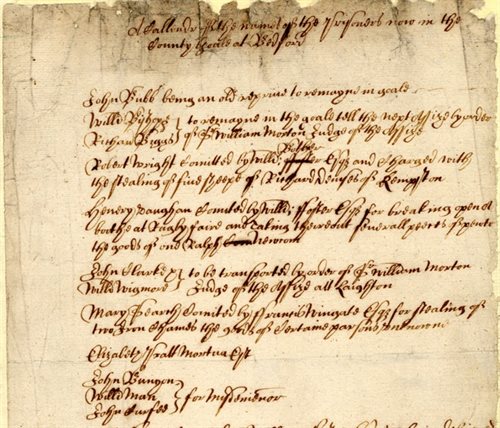 A Callendr of the names of the Prisoners now in the
County Goale at Bedford
John Bubb being an old reprive to remayne in goale
Willm to remayne in the goale tell the next Assize by order
Richard Biggs of Sr William Morton Judge of the Assize
Robert Wright Comitted by Willm Esqr and Charged with
the stealing of five sheepe of Richard of Kempston
Henery Vaughan Comited by Willm ffoster Esqr for breaking open a
boothe at faire and taking thereout severall peeces of
the goods of one Ralph Newcom
John Clarke to be transported by order of Sr William Morton
Willm Wigmore Judge of the Assize att
Mary Comited by ffrancis Wingate Esqr for stealing of
two Iron the goods of Certaine parsons unknowne
Elizabeth Pratt Mortua Est
John Bunyon
Willm Man for Misdemenor
John